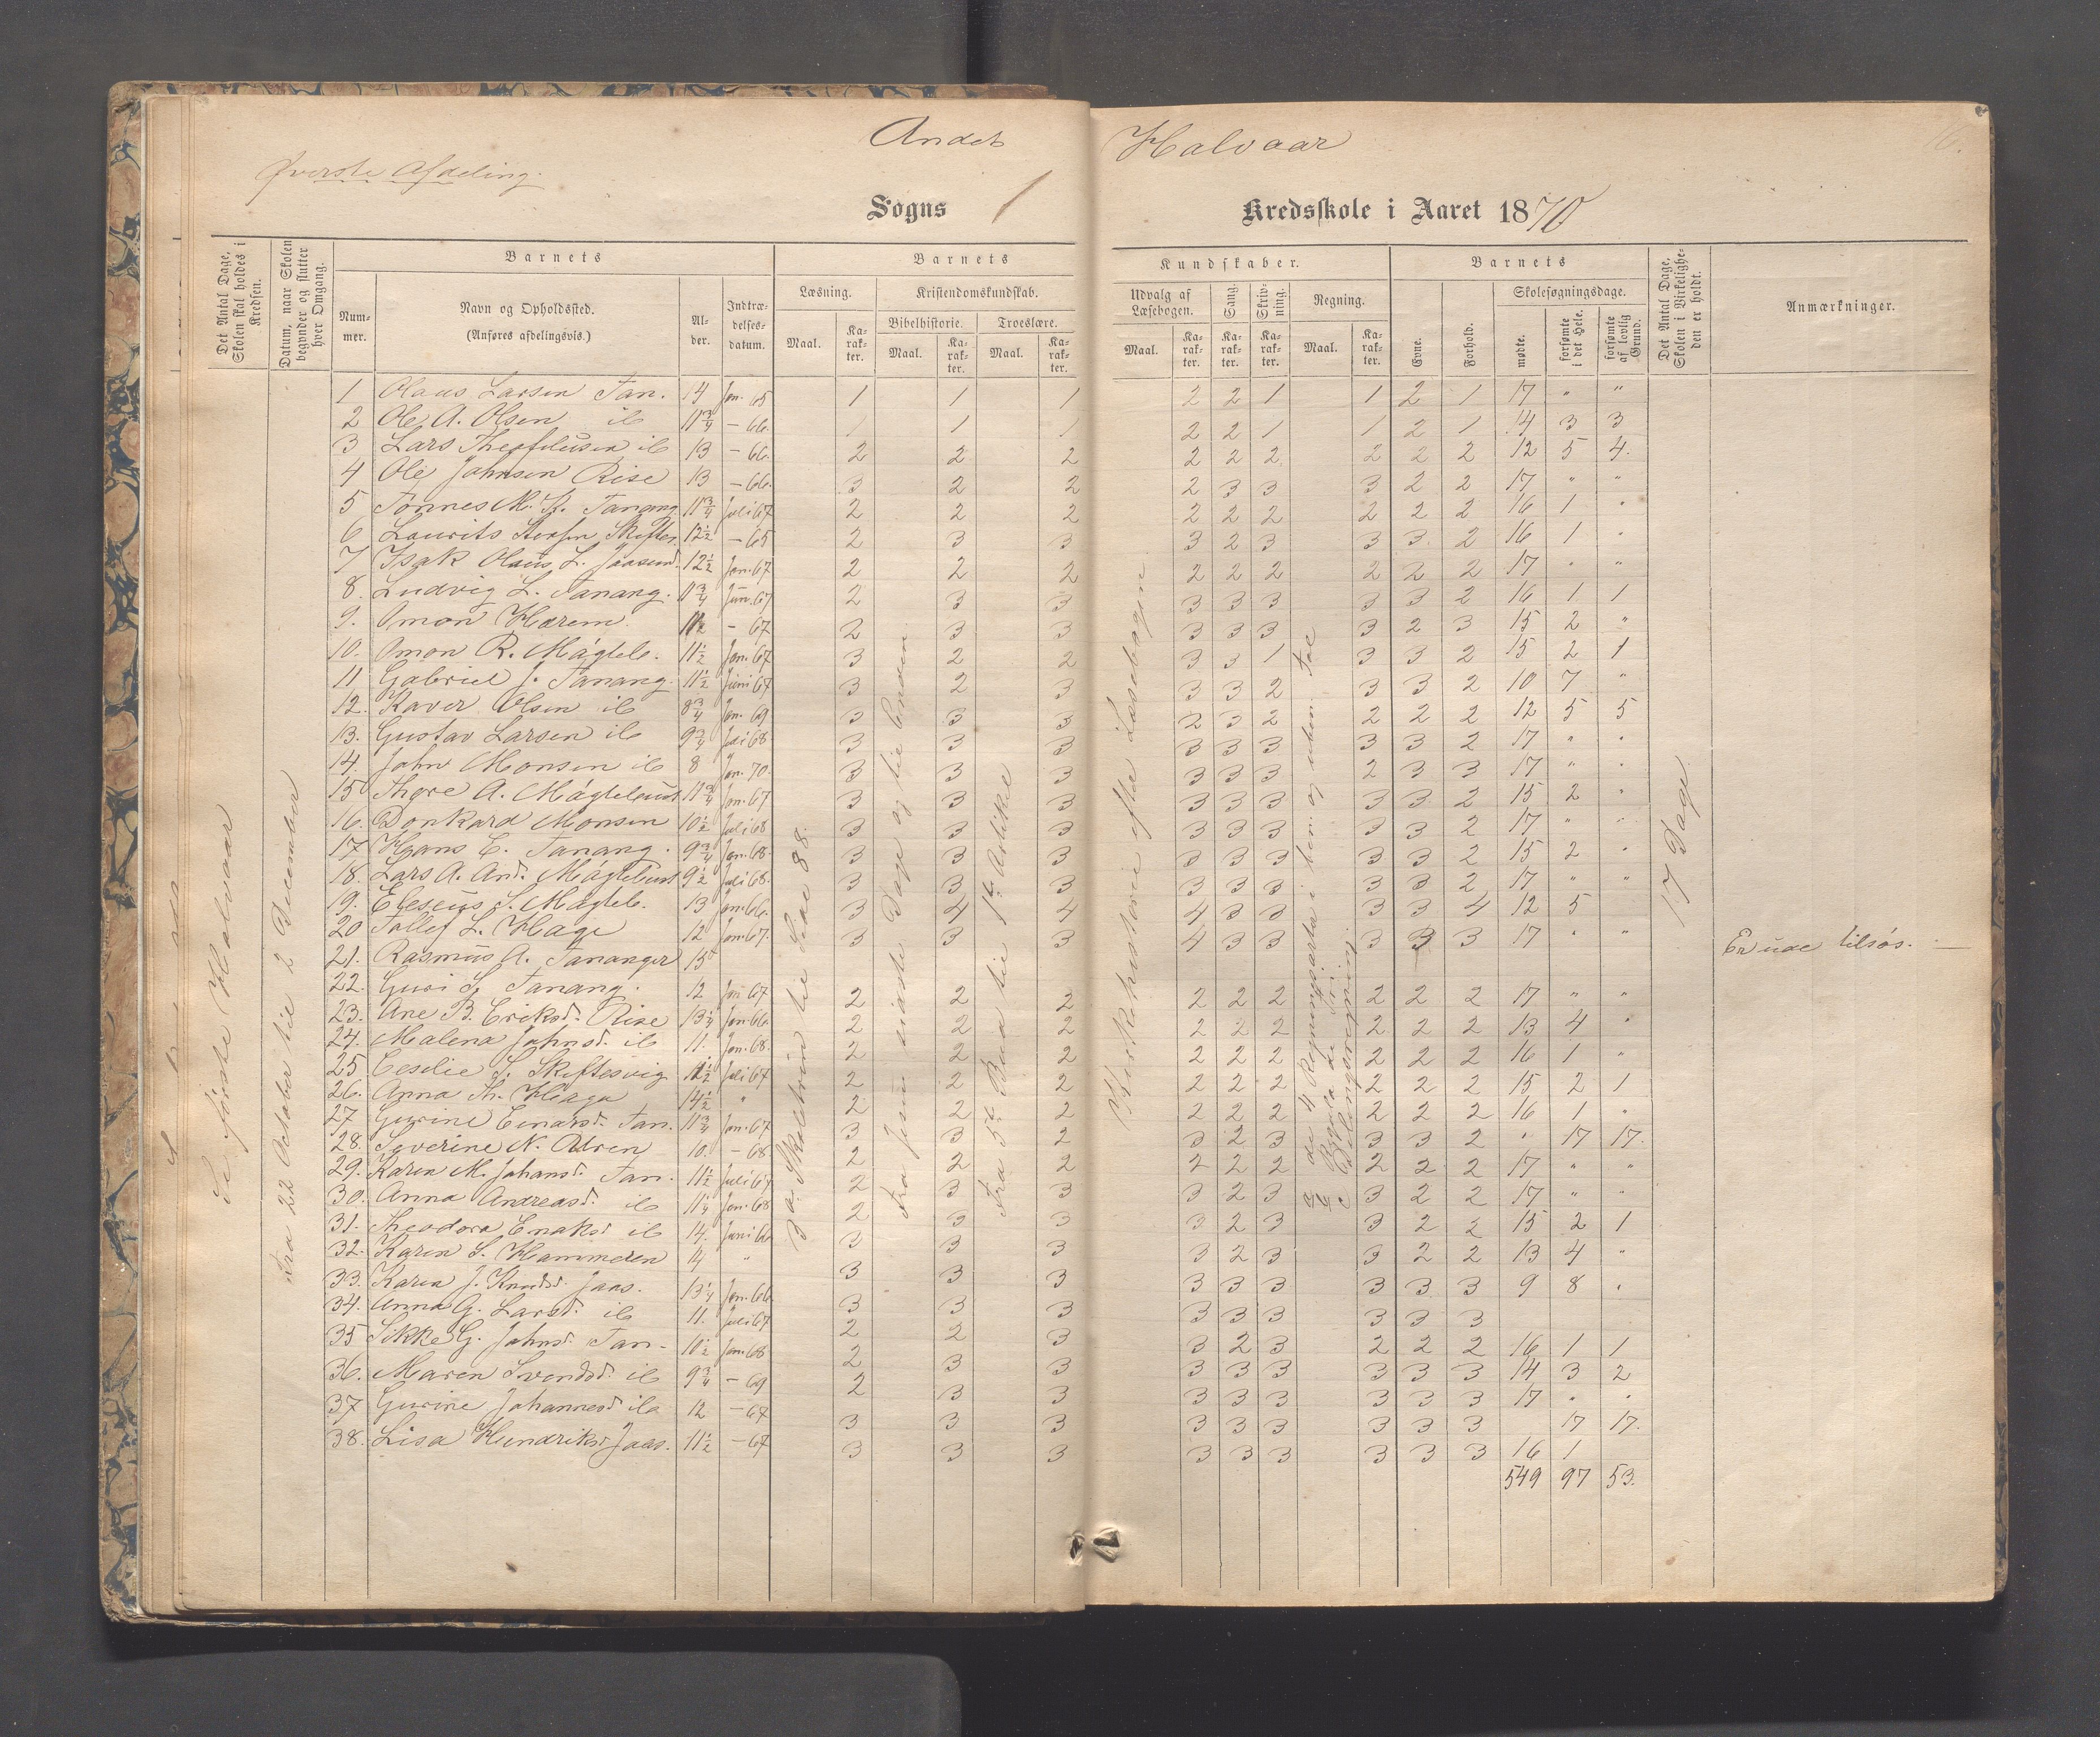 Andet Halvaar
Øverste Afdeling.
Sogns 1 Kredsskole i Aaret 1870
Det Antal Dage, Skolen skal holdes i Kredsen.
Datum, naar Skolen begynder og slutter hver Omgang.
Barnets
Barnets
Kundskaber.
Barnets
Det Antal Dage, Skolen i Virkeligheden er holdt.
Anmærkninger.
Nummer.
Navn og Opholdssted.
(Anføres afdelingsvis.)
Alder.
Indtrædelsesdatum.
Læsning.
Kristendomskundskab.
Bibelhistorie.
Troeslære.
Udvalg af Læsebogen.
Sang.
Skrivning.
Regning.
Evne.
Forhold.
Skolesøgningsdage.
mødte.
forsømte i det Hele.
forsømte af lovlig Grund.
Maal. Karakter. Maal. Karakter. Maal. Karakter. Maal. Karakter. Karakter. Karakter. Maal. Karakter.
Se første Halvaar
Fra 22 October til 2 December
1 Olaus Larsen Tan. 14 Jan. 65 1 1 1 2 2 1 1 2 1 17 " "
2 Ole A. Olsen ib 11 3/4 - 66. 1 1 1 2 2 1 1 2 1 14 3 3
3 Lars Theofilusen ib 13 - 66. 2 2 2 2 2 2 2 2 2 12 5 4.
4 Ole Johnsen Rise 13 - 66. 3 2 2 2 3 3 3 2 2 17 " "
5 Tønnes M. Tanang. 11 3/4 Juli 67 2 2 2 2 2 2 2 2 2 16 1 "
6 Laurits 12 1/2 - 65 2 3 3 3 2 3 3 3 2 16 1 "
7 Isak Olaus L. Jaasund. 12 1/2 Jan. 67 2 2 2 2 2 2 2 2 2 17 " "
8. Ludvig L. Tanang. 11 3/4 Jun. 67 2 3 3 3 3 3 3 3 2 16 1 1
9. Omon Harem. - 67 2 3 3 3 3 3 3 2 3 15 2 "
10. Omon R. Mågleb. 11 1/2 Jan. 67 3 2 2 3 3 1 3 3 2 15 2 1
11 Gabriel J. Tanang. 11 1/2 Juni 67 3 2 3 3 3 2 3 3 2 10 7 "
12. Xaver Olsen ib 8 3/4 Jan. 69 3 3 3 2 3 2 2 2 2 12 5 5
13. Gustav Larsen ib 9 3/4 Juli 68 3 3 3 3 3 3 3 3 2 17 " "
14. John Monsen ib 8 Jan. 70. 3 3 3 3 3 3 2 3 3 17 " "
15 Thore A. 11 3/4 Jan. 67 3 3 3 3 3 3 3 3 2 15 2 "
16. Donkard Monsen 10 1/2 Juli 68 3 3 3 3 3 3 3 3 2 17 " "
17 Hans E. Tanang. 9 3/4 Jan. 68. 3 3 3 3 3 3 3 3 2 15 2 "
18. Lars A. And. 9 1/2 Juli 68. 3 3 3 3 3 3 3 3 2 17 " "
19. Eleseus S. Mågleb. 13 Jan. 66. 3 4 4 4 3 3 3 3 4 12 5
20 Tollef L. Haga 12 Jan. 67. 3 3 3 4 3 3 3 3 3 17 " "
21. Rasmus A. Tananger 15 Er ude tilsøs. —
22. Guri Tanang. 12 Jan 67 2 2 2 2 2 2 2 2 2 17 " "
23. Ane B. Eriksd. Rise 13 1/4 Jan. 66 2 2 2 2 2 2 2 2 2 13 4 "
24. Malena Johnsd. ib 11. Jan. 68. 2 2 2 2 2 2 2 2 2 16 1 "
25 Cesilie S. Skiftesvig 11 1/2 Juli 67 2 2 2 2 2 2 2 2 2 15 2 1
26. Anna Th. Haga 14 1/2 " 2 2 2 2 2 2 2 2 2 16 1 "
27 Gurine Einarsd. Tan. 11 3/4 Jan. 67 3 3 2 3 2 3 3 3 2 " 17 17.
28. Severine N. 10. - 68 2 2 2 2 2 2 2 2 2 17 " "
29. Karen M. Johansd. Tan. 11 1/2 Juli 67 2 3 3 3 2 3 3 2 2 17 " "
30. Anna Andreasd. ib 11 1/4 Jan. 68 2 3 3 3 2 3 3 2 2 15 2 1
31. Theodora ib 14. Juni 66 3 3 3 3 2 3 3 2 2 13 4 "
32. Karen S. Hammeren 14 " 3 3 3 3 3 3 3 3 3 9 8 "
33. Karen J. Knudsd. Jaas. 13 1/4 Jan. 66 3 3 3 3 3 3 3 3 3
34. Anna G. Larsd. ib 11. Juli 67 2 2 3 3 2 3 2 2 2 16 1 1
35 Sikke G. Johnsd. Tan. 10 1/2 Jan. 68 2 3 3 3 3 3 3 3 3 14 3 2
36. Maren Svendsd. ib 9 3/4 - 69 2 3 3 3 3 3 3 3 3 17 " "
37 Gurine Johannesd. ib 12 - 67 3 3 3 3 3 3 3 3 3 17 17.
38. Lisa Hendriksd. Jaas. 11 1/2 - 67 3 3 3 3 3 3 3 3 3 16 1
549 97 53.
Skoletrin til Side 88.
Fra Jesu sidste Dage og til Enden
Fra 5te Bud til 1ste Artikel
Kirkehistorie efter Læsebogen
a de 4 Regningsarter i ben. og uben. Tal
b Regula de Tri
c Delingsregning.
17 Dage.